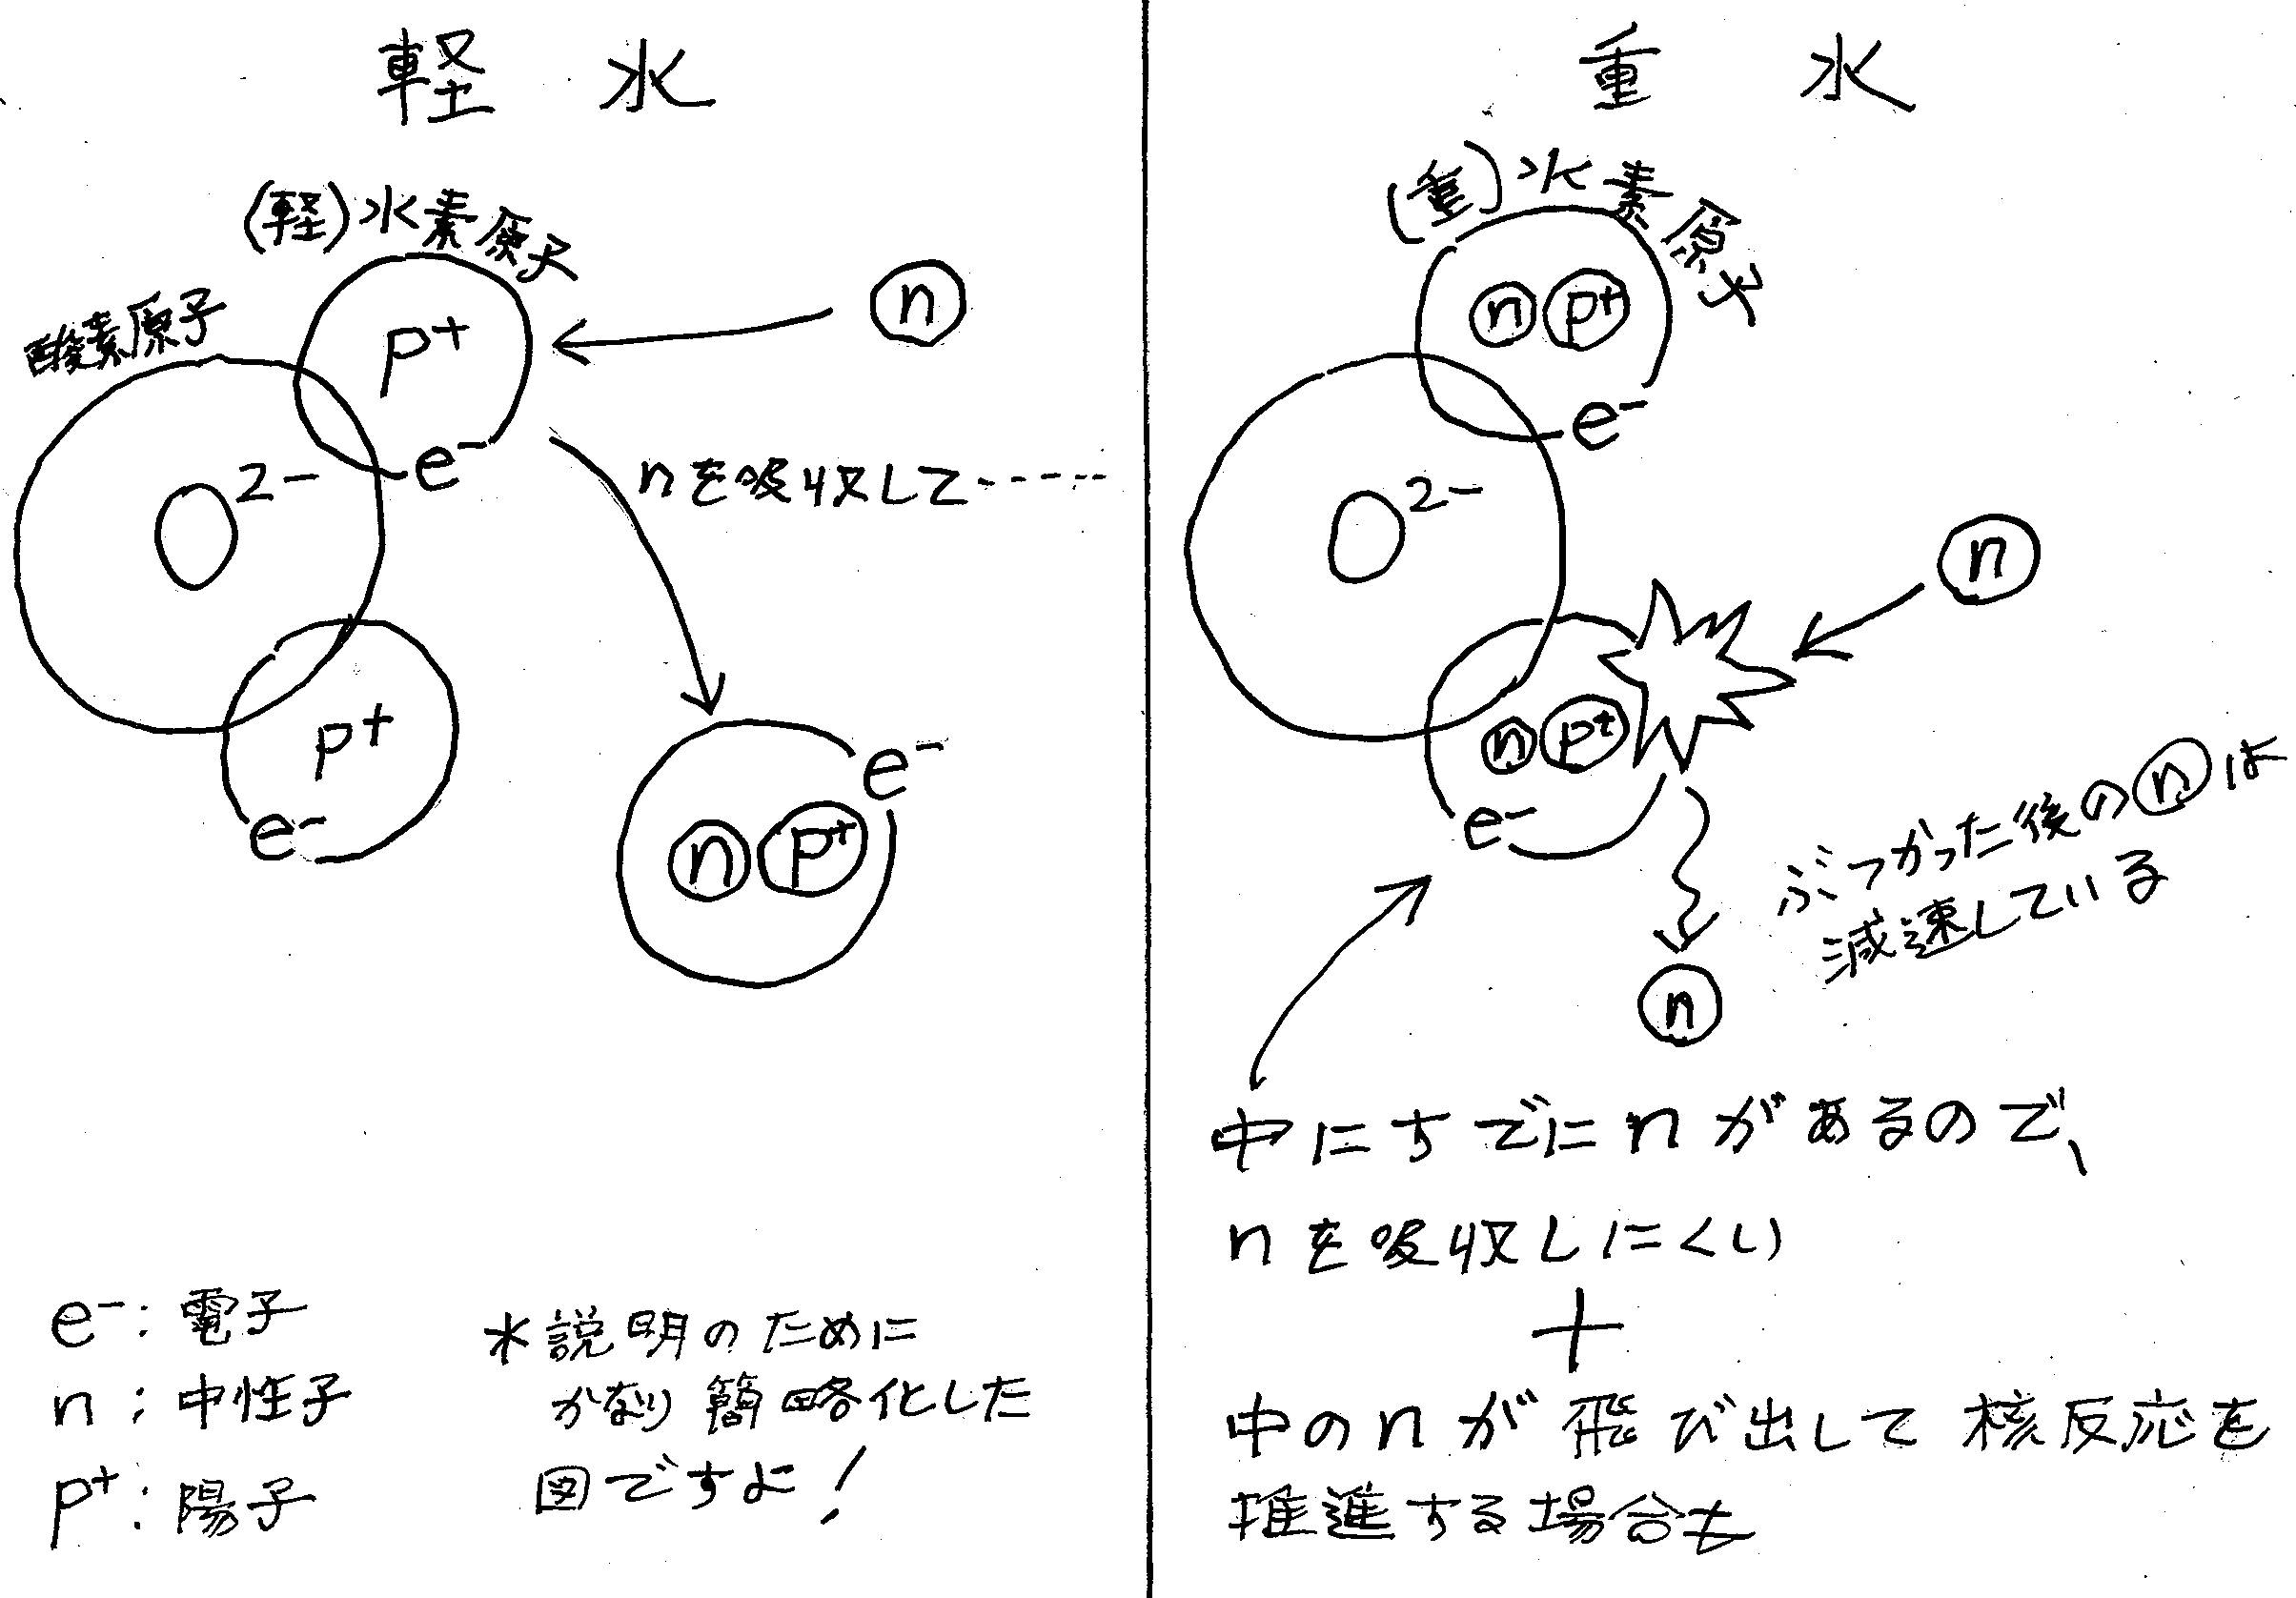 軽水
(軽)水素原子
酸素原子
n
p+
e−
O2−
nを吸収して-----
p+
e−
e−
n p+
e−: 電子
n: 中性子
p+: 陽子
*説明のために
かなり簡略化した
図ですよ!
重水
(重)水素原子
n p+
e−
O2−
n
n p+
e−
ぶつかった後のnは
減速している
n
中にすでにnがあるので、
nを吸収しにくい
+
中のnが飛び出して核反応を
推進する場合も